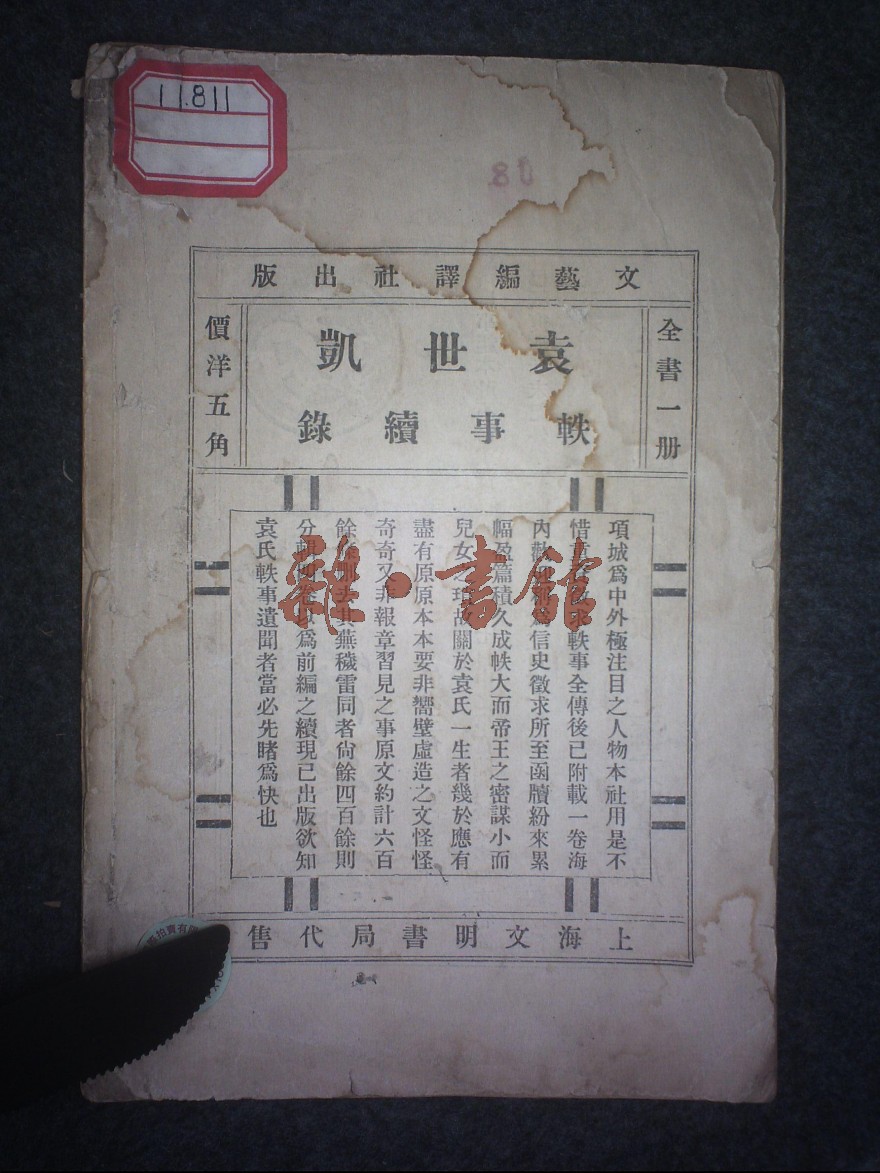 11.811
80
文藝編譯社出版
全書一册
袁世凱
軼事續錄
價洋五角
項城爲中外極注目之人物本社用是不
惜 軼事全傳後已附載一卷海
內 信史徵求所至函牘紛來累
幅盈篇積久成帙大而帝王之密謀小而
兒女之 關於袁氏一生者幾於應有
盡有原原本本要非嚮壁虛造之文怪怪
奇奇又非報章習見之事原文約計六百
餘 其蕪穢雷同者尙餘四百餘則
分 爲前編之續現已出版欲知
袁氏軼事遺聞者當必先睹爲快也
上海文明書局代售
雜·書館
拍賣有限